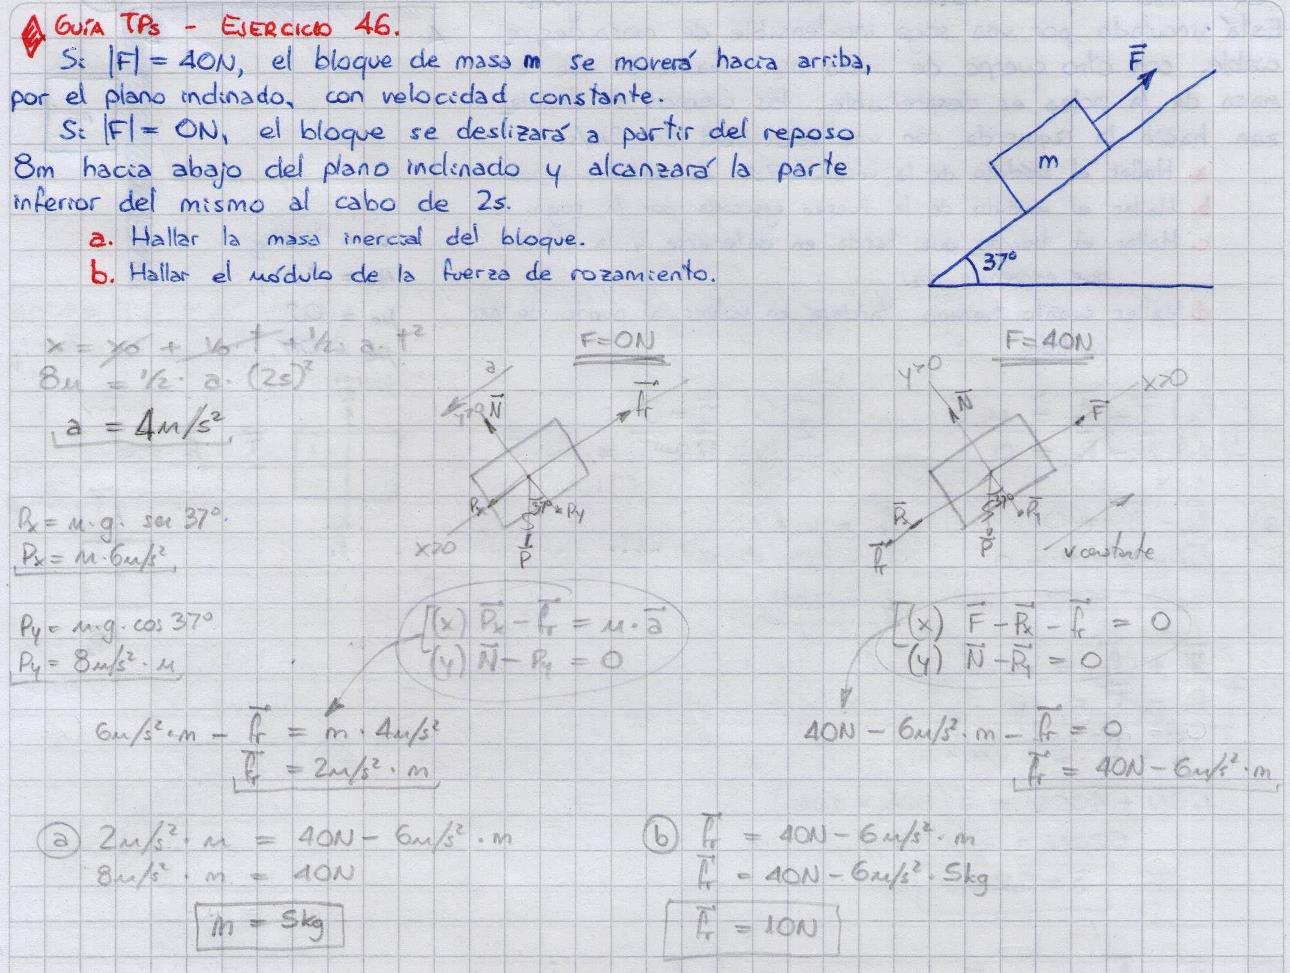 GUÍA TPs - EJERCICIO 46.
Si |F| = 40N, el bloque de masa m se moverá hacia arriba,
por el plano inclinado, con velocidad constante.
Si |F| = 0N, el bloque se deslizará a partir del reposo
8m hacia abajo del plano inclinado y alcanzará la parte
inferior del mismo al cabo de 2s.
a. Hallar la masa inercial del bloque.
b. Hallar el módulo de la fuerza de rozamiento.
F
m
37°
x = x₀ + v₀ t + 1/2 · a · t²
8m = 1/2 · a · (2s)²
a = 4m/s²
F=0N
a
y>0
N
fr
Px
37°
Py
P
x>0
F=40N
y>0
N
x>0
F
Px
37°
Py
P
fr
v constante
Px = m·g· sen 37°
Px = m·6m/s²
Py = m·g·cos 37°
Py = 8m/s²·m
(x) Px - fr = m·a
(y) N - Py = 0
(x) F - Px - fr = 0
(y) N - Py = 0
6m/s²·m - fr = m · 4m/s²
fr = 2m/s² · m
40N - 6m/s²·m - fr = 0
fr = 40N - 6m/s²·m
a 2m/s² · m = 40N - 6m/s² · m
8m/s² · m = 40N
m = 5kg
b fr = 40N - 6m/s² · m
fr = 40N - 6m/s² · 5kg
fr = 10N